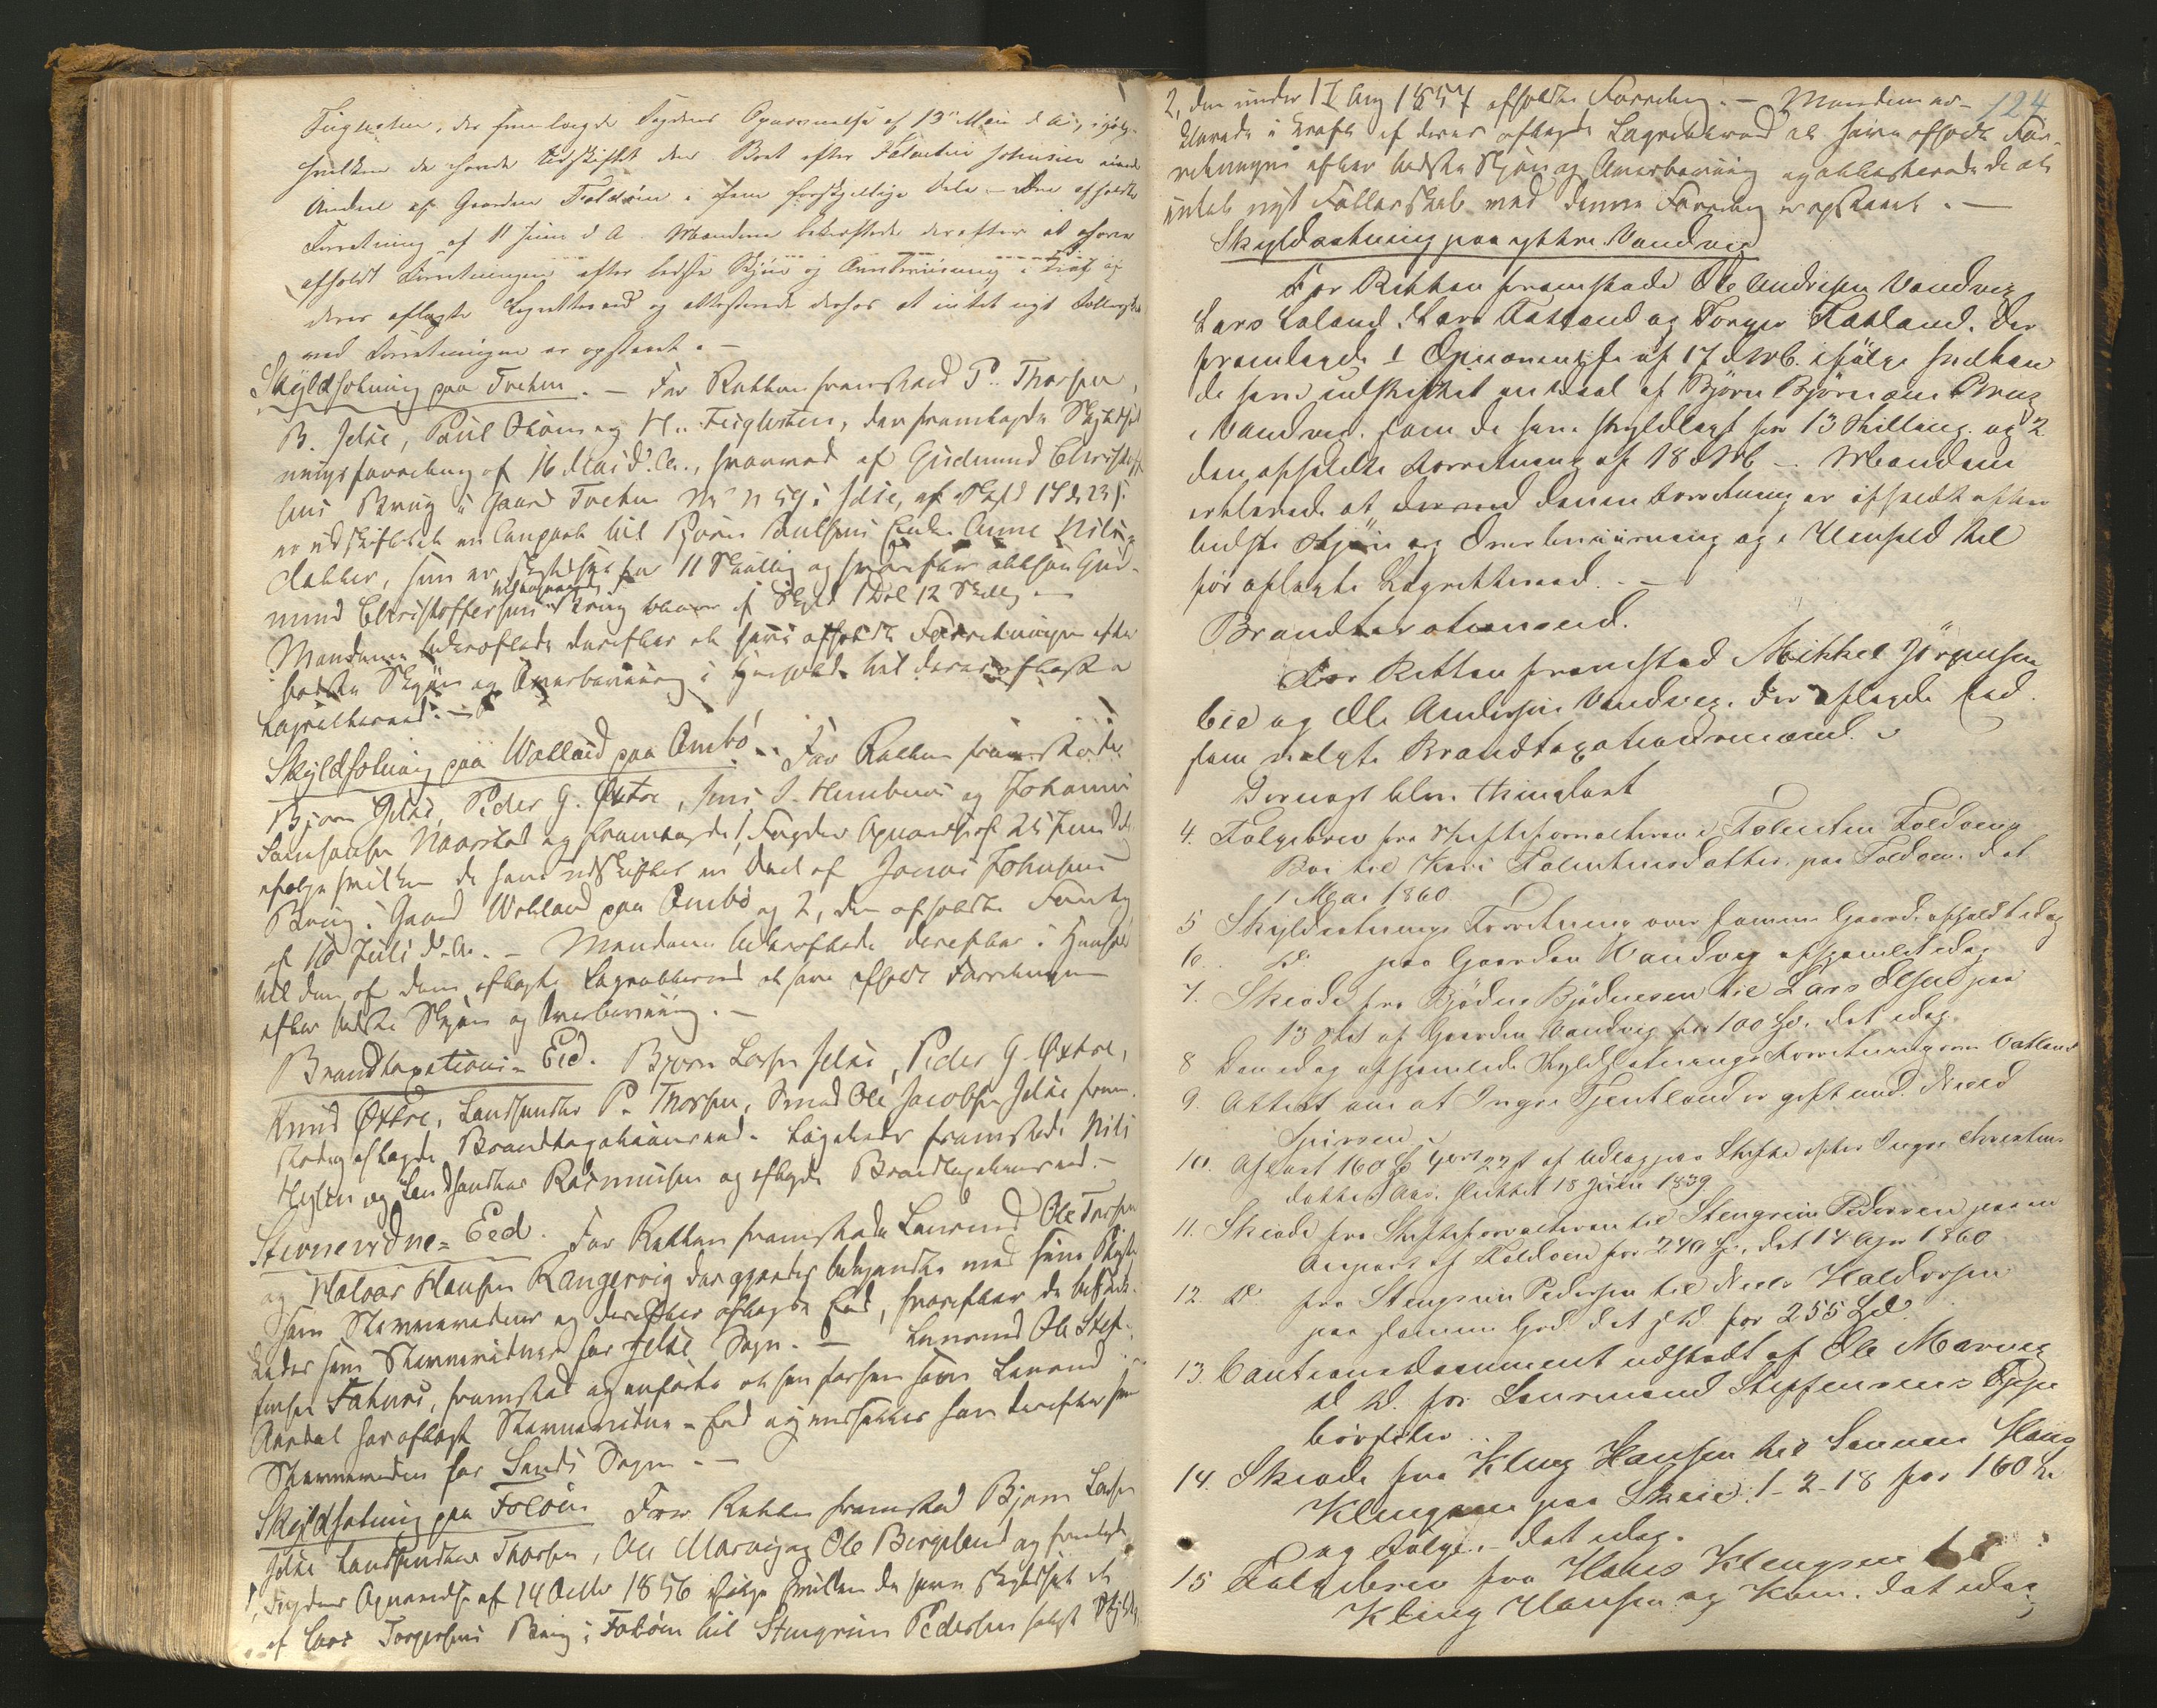 Fuglestein, der fremlagde Fogdens Opnævnelse af 13 Mai d. A., ifølge
hvilken de havde udskiftet den Bret efter Valentin Johnsen eiende
Andeel af Gaarden Foldøen i fem forskjellige Dele - den afholdte
Forretning af 11 Juni d A. Mændene bekræftede derefter at have
afholdt Forretningen efter bedste Skjøn og Overbeviisning i Kraft af
deres aflagte Lagretteseed og attesterede derhos at intet nyt Fællesskab
ved Forretningen er opstaaet. -
Skyldsætning paa Tveten. - For Retten fremstod P. Thorsen,
B. Jelse, Poul Steen og H. Fuglestein, der fremlagde Skyldsæt
ningsforretning af 16 Mai d. A., hvorved af Gudmund Christoffer
sens Brug i Gaard Tveten No 59 i Jelse, af Skyld
er udskiftet en Anpart til Bjørn Poulsens Enke Anne Nils
datter, som er skyldsat for 11 Skilling og hvorefter altsaa Gud-
mund Christoffersens tilbageværende Brug bliver af Skyld 1 Dal 12 Skilling -
Mændene bekræftede derefter at have afholdt Forretningen efter
bedste Skjøn og Overbeviisning i Henhold til deres aflagte
Lagretteseed. -
Skyldsætning paa Vatland paa Ombo. For Retten fremstode
Bjørn Jelse, Peder G. Øxtre, Jens J. Hembnes og Johannes
Samsonsen Naarstad og fremlagde 1, Fogdens Opnævnelse af 25 Juni d A
ifølge hvilken de have udskiftet en Deel af Jonas Johnsens
Brug i Gaard Vatland paa Ombo og 2, den afholdte Forretng
af 10 Juli d. A. - Mændene bekræftede derefter i Henhold
til den af dem aflagte Lagretteseed at have afholdt Forretningen
efter bedste Skjøn og Overbeviisning. -
Brandtaxations-Eed. Bjørn Larsen Jelse, Peder G. Øxtre,
Knud Øxtre, Landhandler P. Thorsen, Smed Ole Jacobsen Jelse frem-
stod og aflagde Brandtaxationseed. Ligeledes fremstode Nils
Helgen og Landhandler Rasmussen og aflagde Brandtaxationseed. -
Stevnevidne-Eed. For Retten fremstode Lensmand Ole Torsen
og Halvor Hansen Rangervig der gjordes bekjendte med sine Pligter
som Stevnevidner og derefter aflagde Eed, hvorefter de beskik-
kedes som Stevnevidner for Jelse Sogn. - Lensmand Ole Stef-
fensen Fatnes, fremstod og anførte at han forhen som Lensmand i
Aardal har aflagt Stevnevidne-Eed og ansættes han derefter som
Stevnevidne for Sands Sogn. -
Skyldsætning paa Foløen For Retten fremstod Bjørn Larsen
Jelse Landhandler Thorsen, Ole Marvig og Ole Bergeland og fremlagde
1, Fogdens Opnævnelse af 14 Octbr 1856 ifølge hvilken de have skyldsat et
af Lars Torgersens Brug i Foløen til Stengrim Pedersen solgt Stykke
124
2, den under 17 Aug 1857 afholdte Forretng. - Mændene er-
klærede i Kraft af deres aflagte Lagretteseed at have afholdt For-
retningen efter bedste Skjøn og Overbeviisning og attesterede de at
intet nyt Fællesskab ved denne Forretng er opstaaet. -
Skyldsætning paa ytre Vandvig
For Retten fremstode Ole Andersen Vandvig
Lars Laland, Lars Hatland og Torger Hatland. der
fremlagde 1 Opnævnelse af 17 d Mts. ifølge hvilken
de have udskiftet en Deel af Bjørn Bjørnsens Brug
i Vandvig, som de have skyldlagt for 13 Skilling. og 2
den afholdte Forretning af 18 d M. - Mændene
erklærede at denne Forretning er afholdt efter
bedste Skjøn og Overbeviisning og i Henhold til
før aflagte Lagretteseed. -
Brandtaxationseed.
For Retten fremstod Mikkel Jörgensen
Eie og Ole Andersen Vandvig, der aflagde Eed
som valgte Brandtaxationsmænd.
Dernæst blev thinglæst
4. Følgebrev fra Skifteforvalteren i Falentin Foldøens
Bo til Kari Falentinsdatter paa Foldøen. dat
1 Mai 1860
5 Skyldsætnings Forretning over samme Gaard, afholdt idag
6. Do paa Gaarden Vandvig afhjemlet idag
7. Skiøde fra Bjödne Bjödnesen til Lars Olsen paa
13 Skl af Gaarden Vandvig for 100 Spd. dat idag.
8 Den idag afhjemlede Skyldsætnings Forretning over Vatland
9. Attest om at Inger Tjentland er gift med
10. Aflæst 160 Spd 4 ort 22 s af Udlæg paa Skifte efter Inger Christens
datter Aas. sluttet 18 Juni 1839
11. Skiøde fra Skifteforvalteren til Stengrim Pedersen paa en
Anpart af Foldøen for 240 Spd, dat 14 Apr 1860
12. Do fra Stengrim Pedersen til Niels Haldorsen
paa samme Grd dat s D. for 255 Spd.
13. Cautionsdocument udstædt af Ole Marvig
d. D. for Lensmand Steffensens Oppe
børsler.
14. Skiøde fra Kling Hansen til Sønnen Hans
Klingsen paa Skeie. 1-2-18 for 160 Spd
og Følge. - dat idag.
15 Følgebrev fra Hans Klengsen til
Kling Hansen og Kone. dat idag